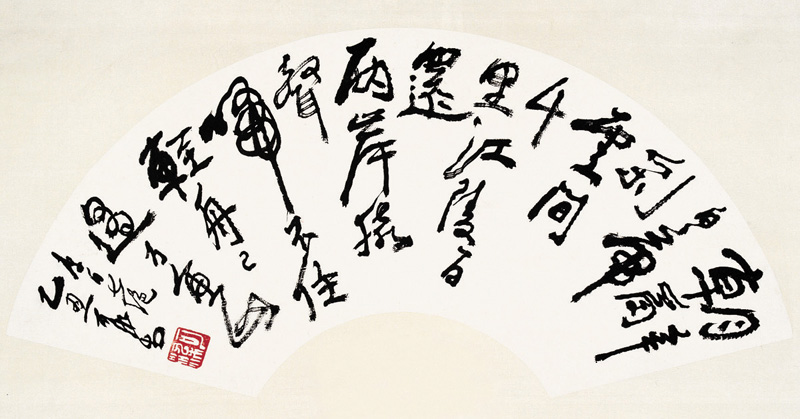 朝辭
白帝
彩
雲間
千
里江陵一日
還
兩岸猿
聲
啼不住
輕舟已
過万重山
乙丑